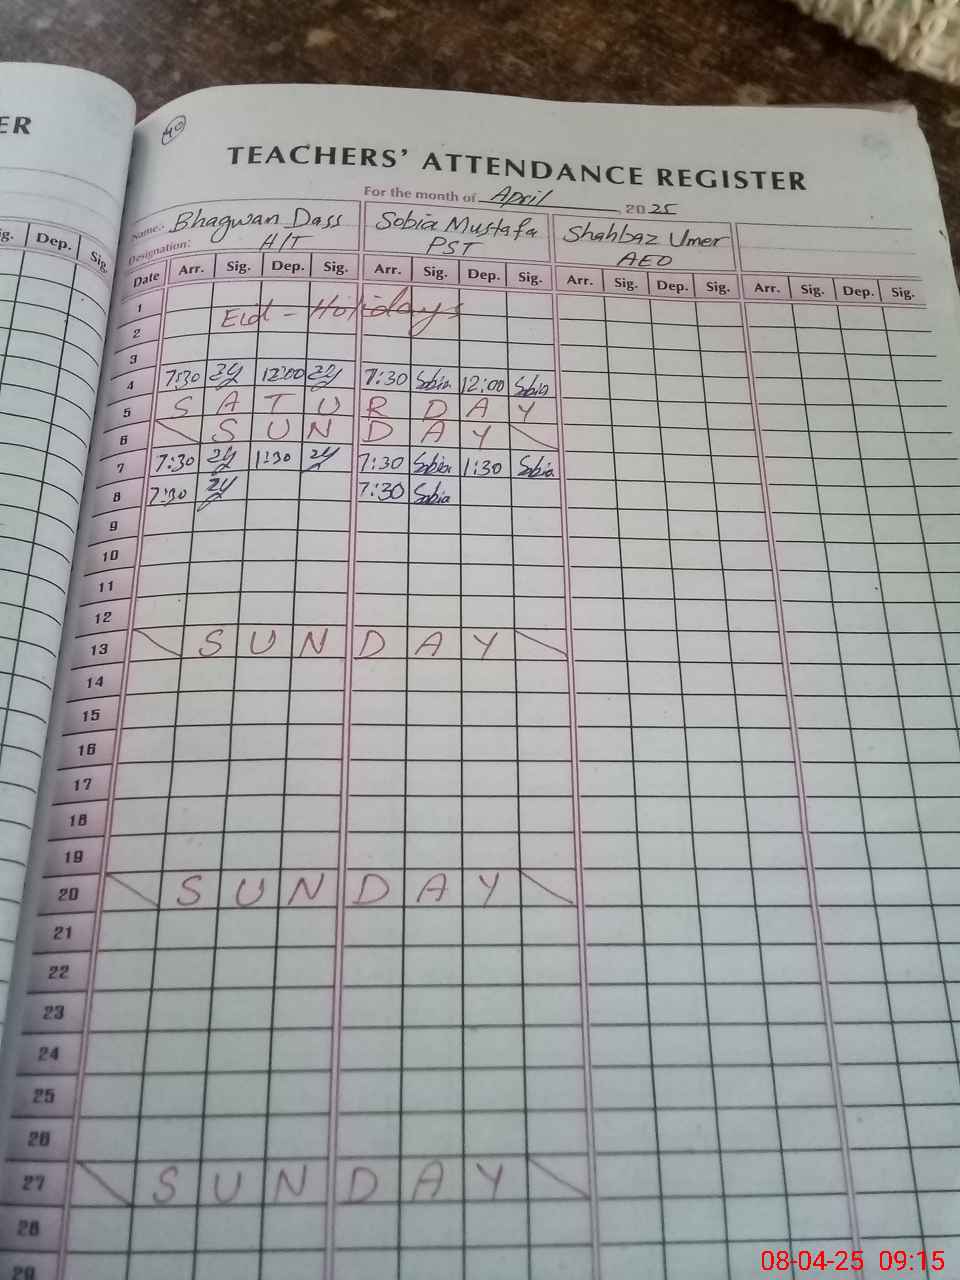 ER
40
TEACHERS' ATTENDANCE REGISTER
For the month of April 2025
Name:- Bhagwan Dass Sobia Mustafa Shahbaz Umer
Designation: H/T PST AEO
ig. Dep. Sig.
Date Arr. Sig. Dep. Sig. Arr. Sig. Dep. Sig. Arr. Sig. Dep. Sig. Arr. Sig. Dep. Sig.
1
Eid - Holidays
2
3
4 7:30 12:00 7:30 Sobia 12:00 Sobia
5 SATURDAY
6 SUNDAY
7 7:30 1:30 7:30 Sobia 1:30 Sobia
8 7:30 7:30 Sobia
9
10
11
12
13 SUNDAY
14
15
16
17
18
19
20 SUNDAY
21
22
23
24
25
26
27 SUNDAY
28
29
08-04-25 09:15